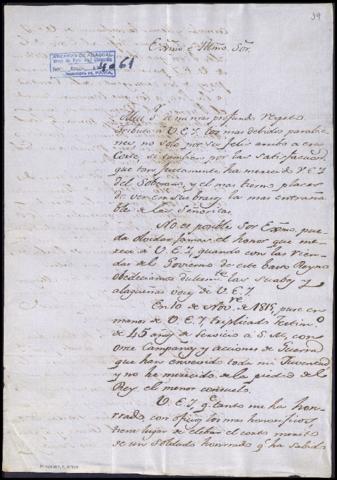 39
61
Exmo. é Illmo. Sor.
mi mas profundo respeto
tributo a V.E.Y. los mas debidos parabie-
nes, no solo por su feliz arribo a esa
Corte, si tambien por las satisfacciones
que tan justamente ha merecido V.E.Y.
del Soberano, y el mas tierno placer
de ver en su brazo la mas entraña
ble de las Señoritas.
No es posible Sor Exmo. pue-
da olvidar jamas el honor que me-
recí a V.E.Y. quando con las rien-
das de el Govierno de este basto Reyno
obedeciamos las suabes y
alagueñas voces de V.E.Y.
En 10 de Novre. de 1815, puse en
manos de V.E.Y. triplicado
de 45 años de servicio a S.M. con
once Campañas y acciones de Guerra
que han envejecido toda mi Juventud
y no he merecido de la piedad de el
Rey el menor consuelo.
V.E.Y. qe. tanto me ha hon-
rrado, con oficios los mas honorificos,
tiene lugar de elebar el corto merito
de un Soldado honrrado qe. ha sabido